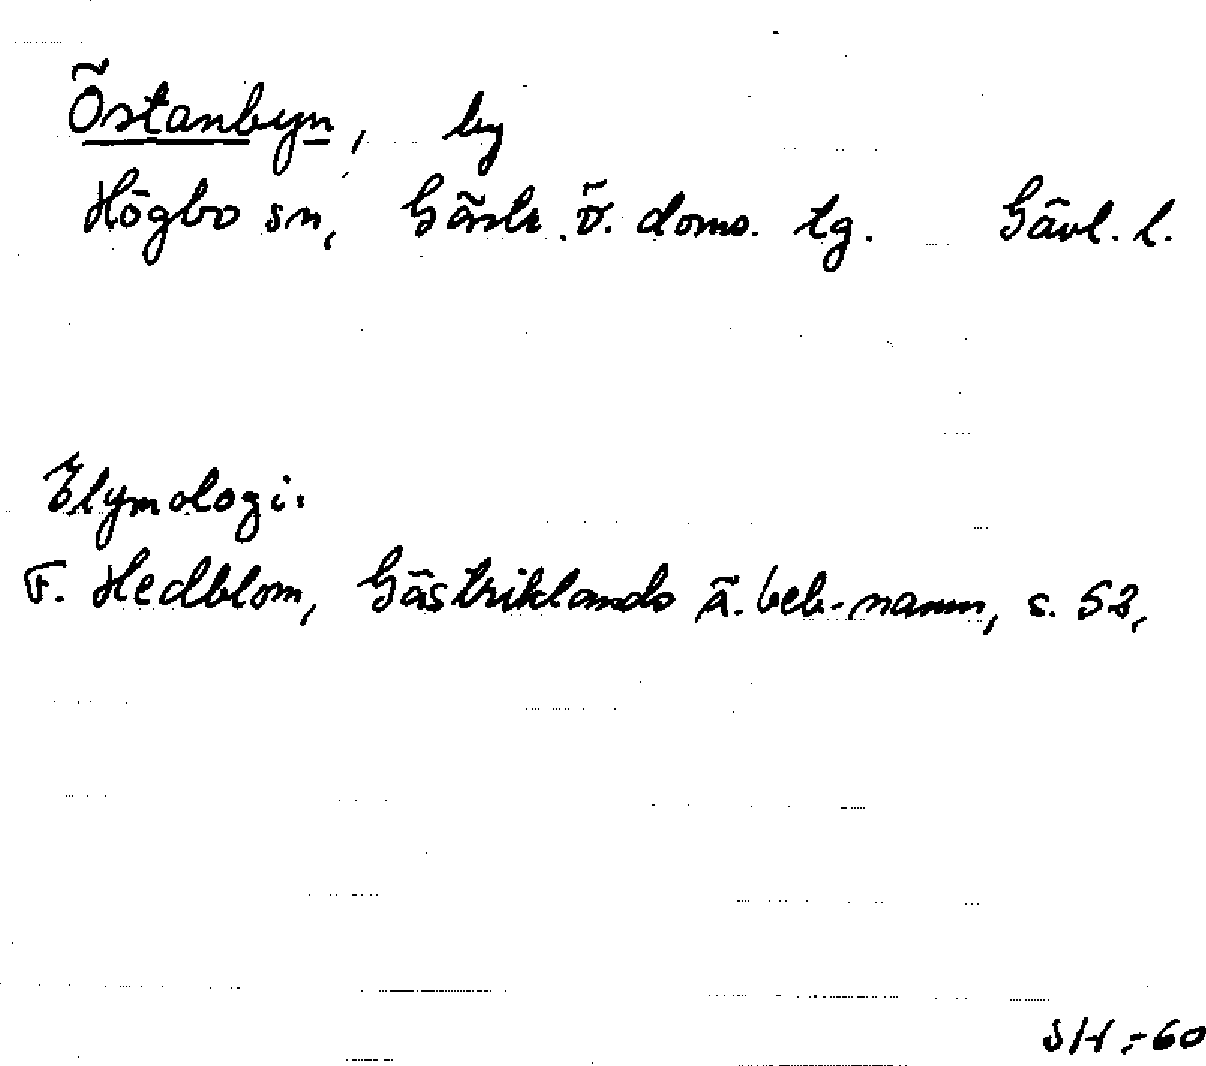 Östanbyn, by
Högbo sn, Gästr. ö. doms. tg. Gävl. l.
Etymologi.
F. Hedblom, Gästriklands ä. beb.-namn, s. 53,
SH -60